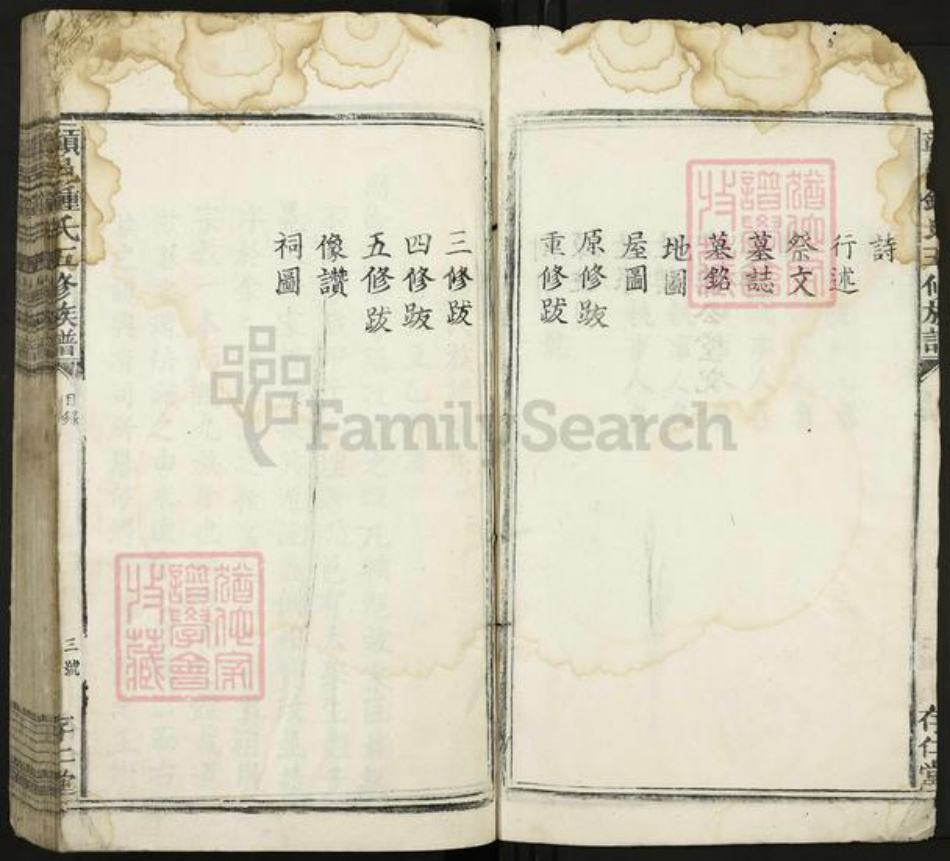 詩
行述
祭文
墓誌
墓銘
地圖
屋圖
原修跋
重修跋
存仁堂
三修跋
四修跋
五修跋
像讚
祠圖
鍾氏五修族譜
目錄
三號
存仁堂
FamilySearch
譜學會
收藏